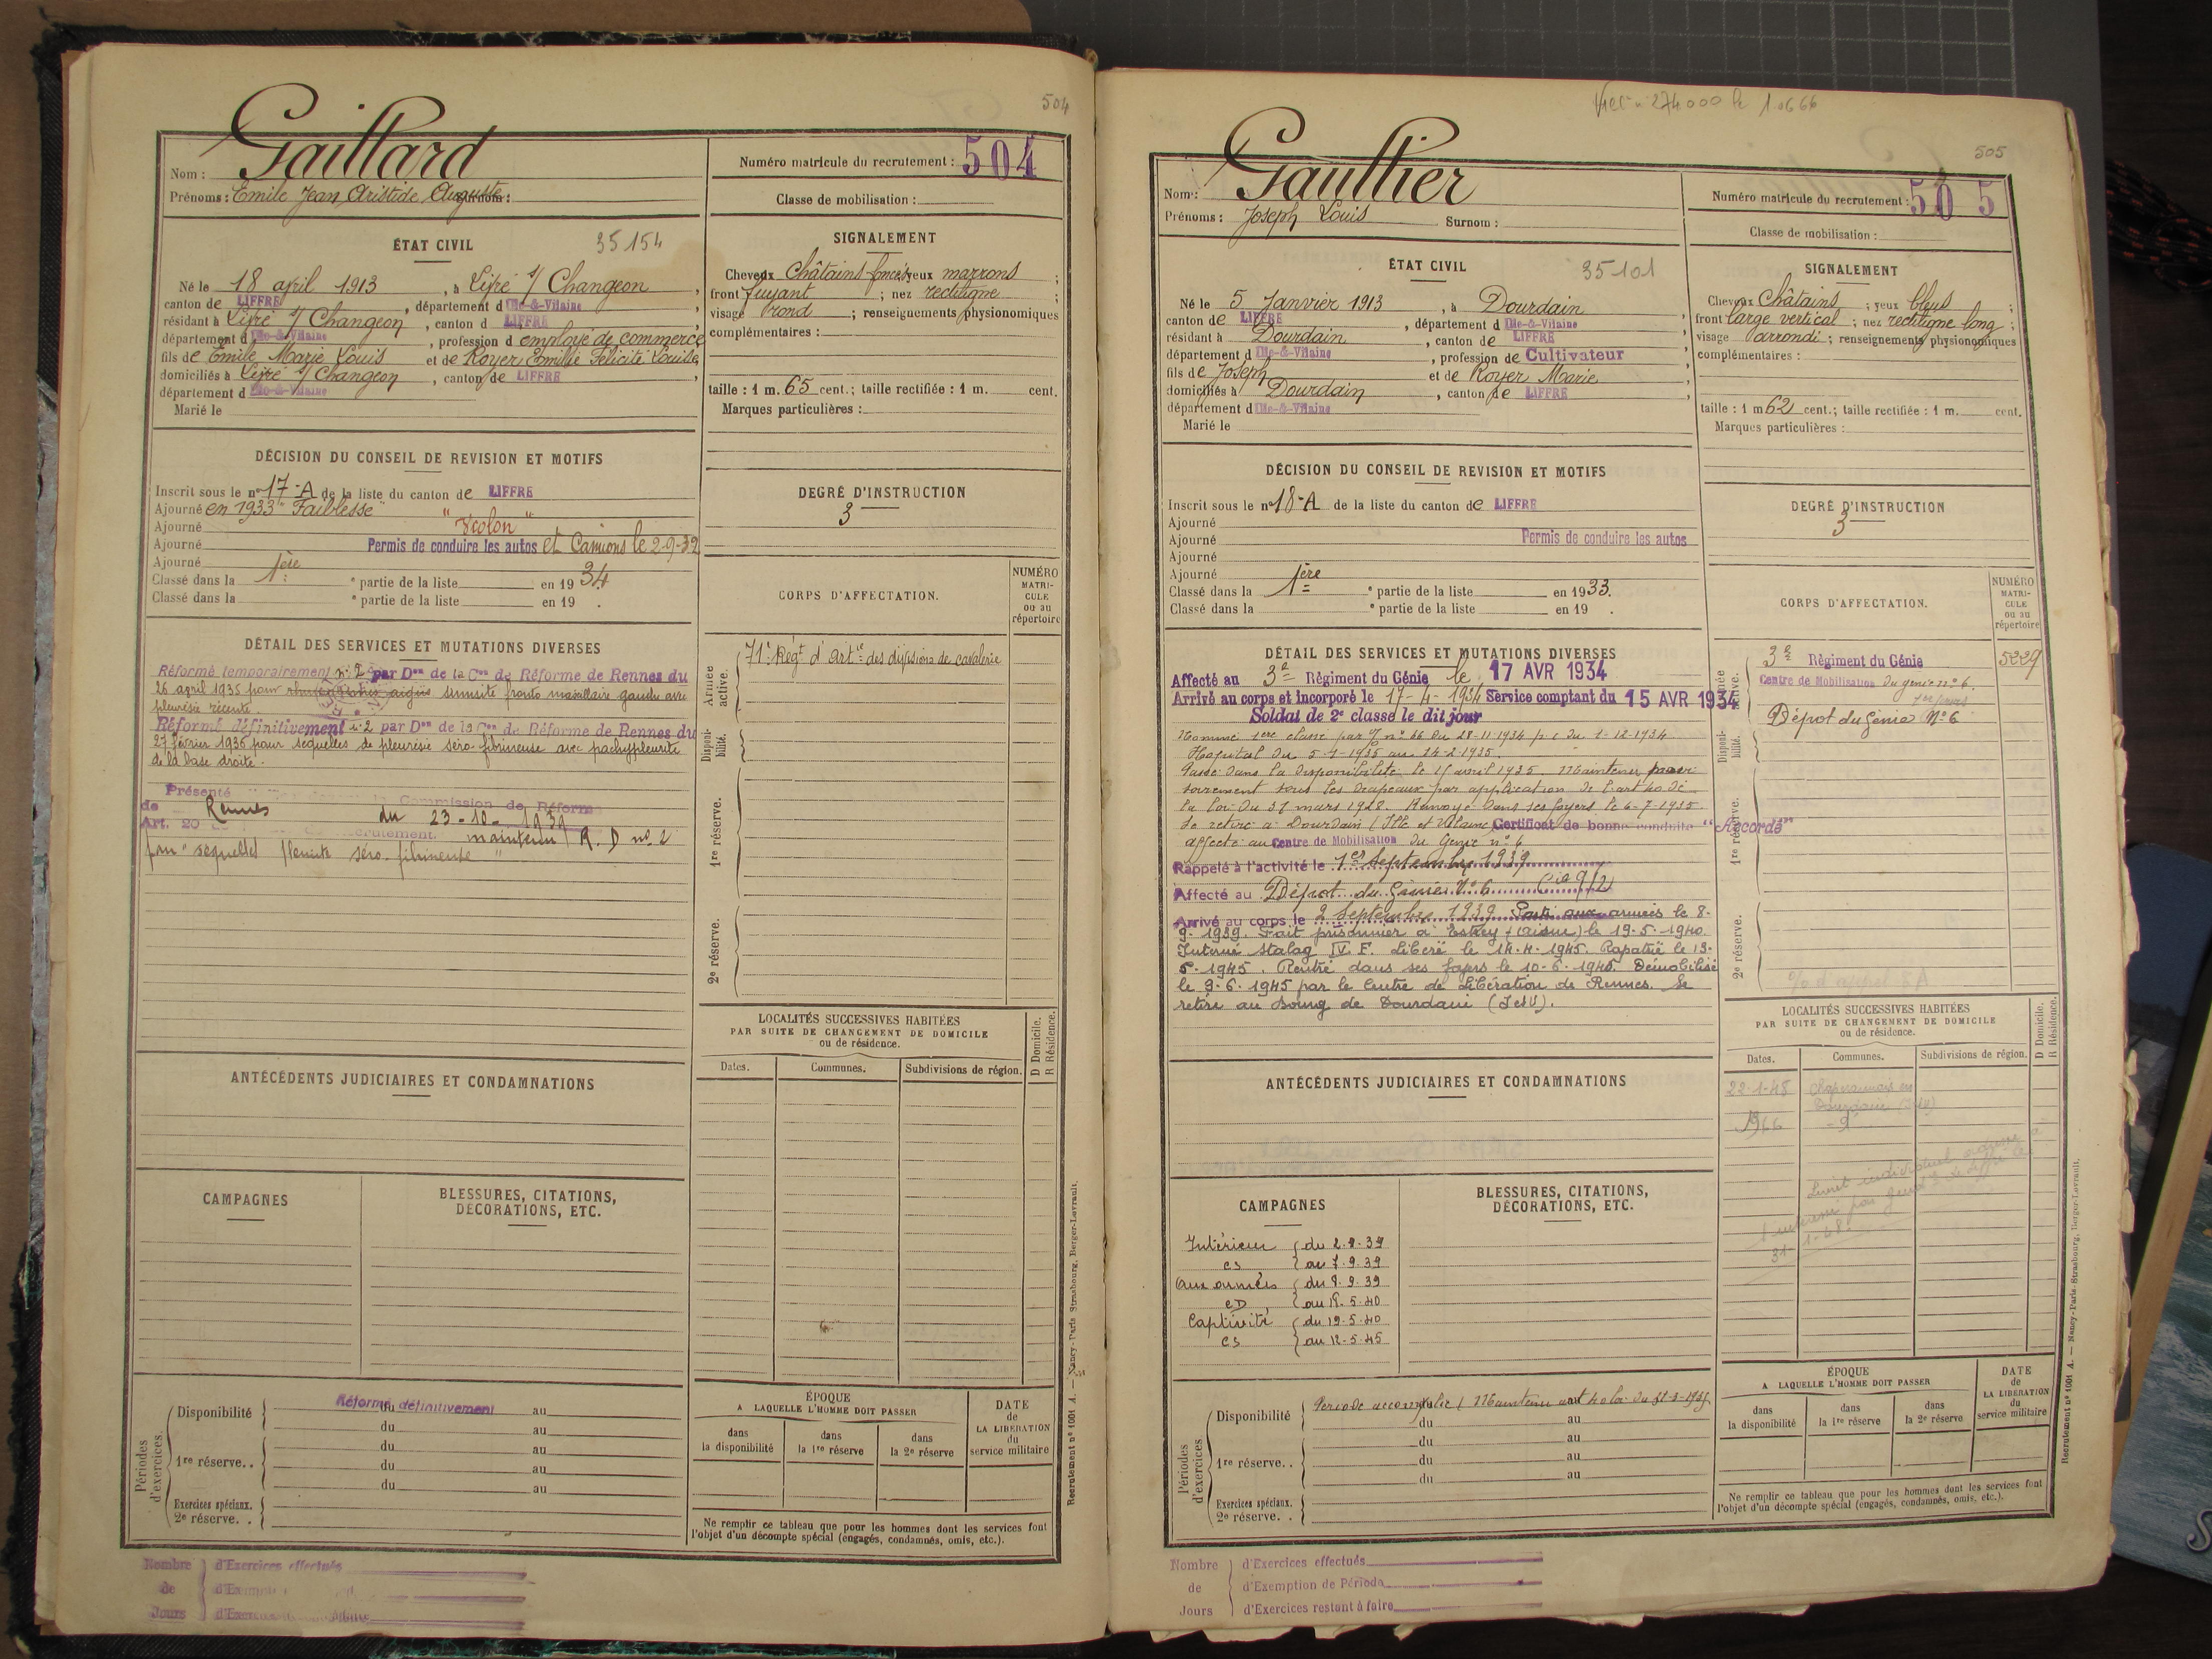 504
Gaillard
Nom :
Prénoms : Emile Jean Aristide Auguste Surnom :
Numéro matricule du recrutement : 504
Classe de mobilisation :
ÉTAT CIVIL
35154
Né le 18 avril 1913, à Lifré s/ Changeon,
canton de LIFFRE, département d Ille-&-Vilaine
résidant à Lifré s/ Changeon, canton d LIFFRE
département d Ille-&-Vilaine, profession d employé de commerce
fils de Emile Marie Louis et de Royer Emilie Félicité Louise,
domiciliés à Lifré s/ Changeon, canton de LIFFRE,
département d Ille-&-Vilaine
Marié le
SIGNALEMENT
Cheveux Châtains foncés, yeux marrons ;
front fuyant ; nez rectiligne ;
visage rond ; renseignements physionomiques
complémentaires :
taille : 1 m. 65 cent.; taille rectifiée : 1 m. cent.
Marques particulières :
DÉCISION DU CONSEIL DE REVISION ET MOTIFS
Inscrit sous le n° 17-A de la liste du canton de LIFFRE
Ajourné en 1933 "Faiblesse"
Ajourné
Ajourné Permis de conduire les autos et Camions le 2-9-32
Ajourné
Classé dans la 1ère partie de la liste en 1934
Classé dans la e partie de la liste en 19 .
DEGRÉ D'INSTRUCTION
3
CORPS D'AFFECTATION.
NUMÉRO MATRI-CULE ou au répertoire
DÉTAIL DES SERVICES ET MUTATIONS DIVERSES
Réformé temporairement n° 2 par Don de la Con de Réforme de Rennes du
26 avril 1935 pour sinusite fronto maxillaire gauche avec
pleurésie récente.
Réformé définitivement n° 2 par Don de la Con de Réforme de Rennes du
27 février 1936 pour séquelles de pleurésie séro-fibrineuse avec pachypleurite
de la base droite.
Présenté Commission de Réforme
de Rennes du 23-10-1939
Art. 20 recrutement. maintenu R. D n° 2
pour "séquelles pleurite séro-fibrineuse"
Armée active.
71e Régt d'Artie des divisions de cavalerie
Disponi-bilité.
1re réserve.
2e réserve.
LOCALITÉS SUCCESSIVES HABITÉES
PAR SUITE DE CHANGEMENT DE DOMICILE
ou de résidence.
D Domicile. R Résidence.
Dates. Communes. Subdivisions de région.
ANTÉCÉDENTS JUDICIAIRES ET CONDAMNATIONS
CAMPAGNES
BLESSURES, CITATIONS, DÉCORATIONS, ETC.
Périodes d'exercices.
Disponibilité Réformé définitivement
du au
du au
1re réserve. . du au
du au
du au
Exercices spéciaux.
2e réserve. .
ÉPOQUE
A LAQUELLE L'HOMME DOIT PASSER
dans la disponibilité
dans la 1re réserve
dans la 2e réserve
DATE de LA LIBÉRATION du service militaire
Ne remplir ce tableau que pour les hommes dont les services font
l'objet d'un décompte spécial (engagés, condamnés, omis, etc.).
Recrutement n° 1001 A. — Nancy-Paris-Strasbourg, Berger-Levrault.
Nombre de Jours
d'Exercices effectués
505
Gaultier
Nom :
Prénoms : Joseph Louis Surnom :
Numéro matricule du recrutement : 505
Classe de mobilisation :
ÉTAT CIVIL
35101
Né le 5 Janvier 1913, à Dourdain
canton de LIFFRE, département d Ille-&-Vilaine
résidant à Dourdain, canton de LIFFRE
département d Ille-&-Vilaine, profession de Cultivateur
fils de Joseph et de Royer Marie
domiciliés à Dourdain, canton de LIFFRE
département d Ille-&-Vilaine
Marié le
SIGNALEMENT
Cheveux Châtains ; yeux bleus ;
front large vertical ; nez rectiligne long ;
visage arrondi ; renseignements physionomiques
complémentaires :
taille : 1 m 62 cent.; taille rectifiée : 1 m. cent.
Marques particulières :
DÉCISION DU CONSEIL DE REVISION ET MOTIFS
Inscrit sous le n° 18-A de la liste du canton de LIFFRE
Ajourné
Ajourné Permis de conduire les autos
Ajourné
Ajourné
Classé dans la 1ère partie de la liste en 1933.
Classé dans la e partie de la liste en 19 .
DEGRÉ D'INSTRUCTION
3
CORPS D'AFFECTATION.
NUMÉRO MATRI-CULE ou au répertoire
DÉTAIL DES SERVICES ET MUTATIONS DIVERSES
Affecté au 3e Régiment du Génie le 17 AVR 1934
Arrivé au corps et incorporé le 17-4-1934 Service comptant du 15 AVR 1934
Soldat de 2e classe le dit jour
Nommé 1ère classe par O/ n° 66 du 28-11-1934 p. c. du 1-12-1934
Hopital du 5-1-1935 au 14-2-1935.
Passé dans la disponibilité le 15 avril 1935. Maintenu provi
soirement sous les drapeaux par application de l'art 40 de
la loi du 31 mars 1928. Renvoyé dans ses foyers le 6-7-1935.
Se retire à Dourdain (Ille et Vilaine) Certificat de bonne conduite "Accordé"
affecté au Centre de Mobilisation du Génie n° 6
Rappelé à l'activité le 1er Septembre 1939
Affecté au Dépot du Génie N° 6 Cie 9/2
Arrivé au corps le 2 Septembre 1939 Parti aux armées le 8-
9-1939. Fait prisonnier à (Aisne) le 19-5-1940.
Interné stalag IV. F. Libéré le 14-4-1945. Rapatrié le 13-
5-1945. Rentré dans ses foyers le 10-6-1945. Démobilisé
le 9-6-1945 par le Centre de Libération de Rennes. Se
retire au bourg de Dourdain (I et V).
3e Régiment du Génie 5229
Centre de Mobilisation du génie n° 6
Dépot du Génie N° 6
Disponi-bilité.
1re réserve.
2e réserve.
LOCALITÉS SUCCESSIVES HABITÉES
PAR SUITE DE CHANGEMENT DE DOMICILE
ou de résidence.
D Domicile. R Résidence.
Dates. Communes. Subdivisions de région.
22-1-48
Dourdain (I&V)
1966
ANTÉCÉDENTS JUDICIAIRES ET CONDAMNATIONS
CAMPAGNES
Intérieur du 2.9.39
CS au 7.9.39
Aux armées du 8.9.39
CD au 18.5.40
Captivité du 19.5.40
CS au 12.5.45
BLESSURES, CITATIONS, DÉCORATIONS, ETC.
Périodes d'exercices
Disponibilité Période accomplie (Maintenu art 40 loi du 31-3-1928)
du au
du au
1re réserve. . du au
du au
Exercices spéciaux.
2e réserve. .
ÉPOQUE
A LAQUELLE L'HOMME DOIT PASSER
dans la disponibilité
dans la 1re réserve
dans la 2e réserve
DATE de LA LIBÉRATION du service militaire
Ne remplir ce tableau que pour les hommes dont les services font
l'objet d'un décompte spécial (engagés, condamnés, omis, etc.).
Recrutement n° 1001 A. — Nancy-Paris-Strasbourg, Berger-Levrault.
Nombre de Jours
d'Exercices effectués
d'Exemption de Période
d'Exercices restant à faire